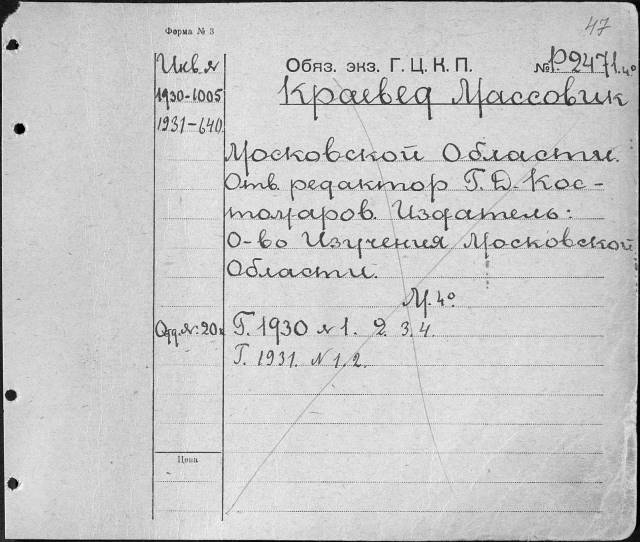 47
Форма № 3
Инв. №
Обяз. экз. Г. Ц. К. П. № Р2471.4°
1930-1005
Краевед Массовик
1931-640
Московской Области.
Отв. редактор Г. Д. Кос-
томаров. Издатель:
О-во Изучения Московской
Области.
М. 4°
Отд. №: 20к Г. 1930 № 1. 2. 3. 4.
Г. 1931. № 1, 2.
Цена